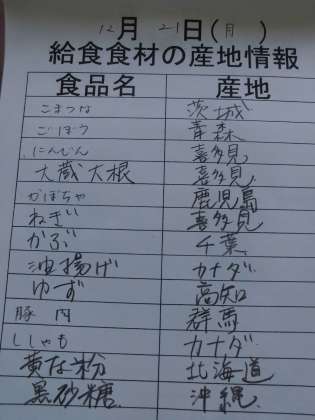 12月21日(月)
給食食材の産地情報
食品名 産地
こまつな 茨城
ごぼう 青森
にんじん 喜多見
大蔵大根 喜多見
かぼちゃ 鹿児島
ねぎ 喜多見
かぶ 千葉
油揚げ カナダ
ゆず 高知
豚肉 群馬
ししゃも カナダ
黄な粉 北海道
黒砂糖 沖縄